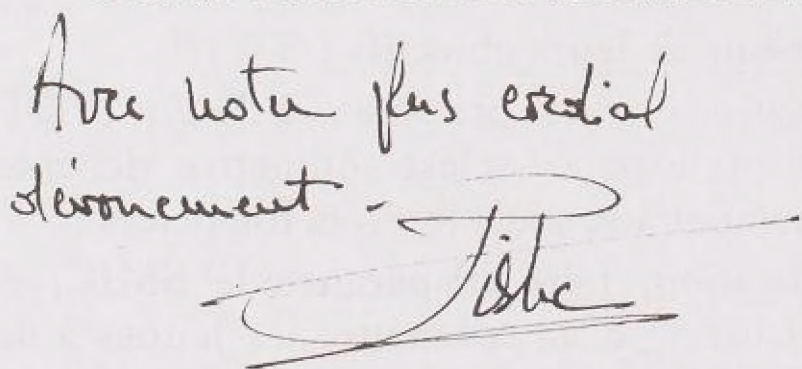 Avec notre plus cordial
dévouement -